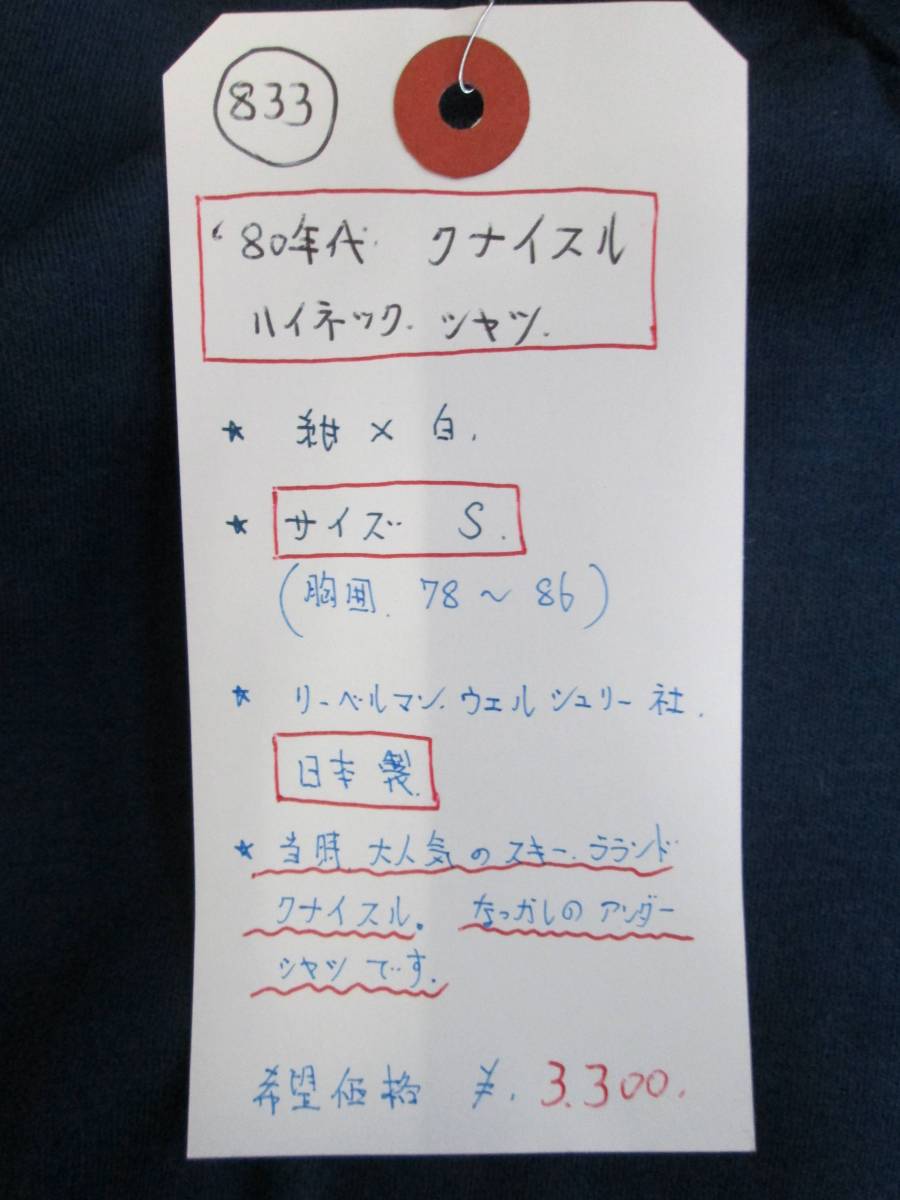 833
'80年代 クナイスル
ハイネック. シャツ.
★ 紺 × 白.
★ サイズ S.
(胸囲. 78~86)
★ リーベルマン.ウェルシュリー社.
日本製.
★ 当時 大人気のスキー.ラランド
クナイスル。 なつかしのアンダー
シャツです.
希望価格 ¥. 3.300.